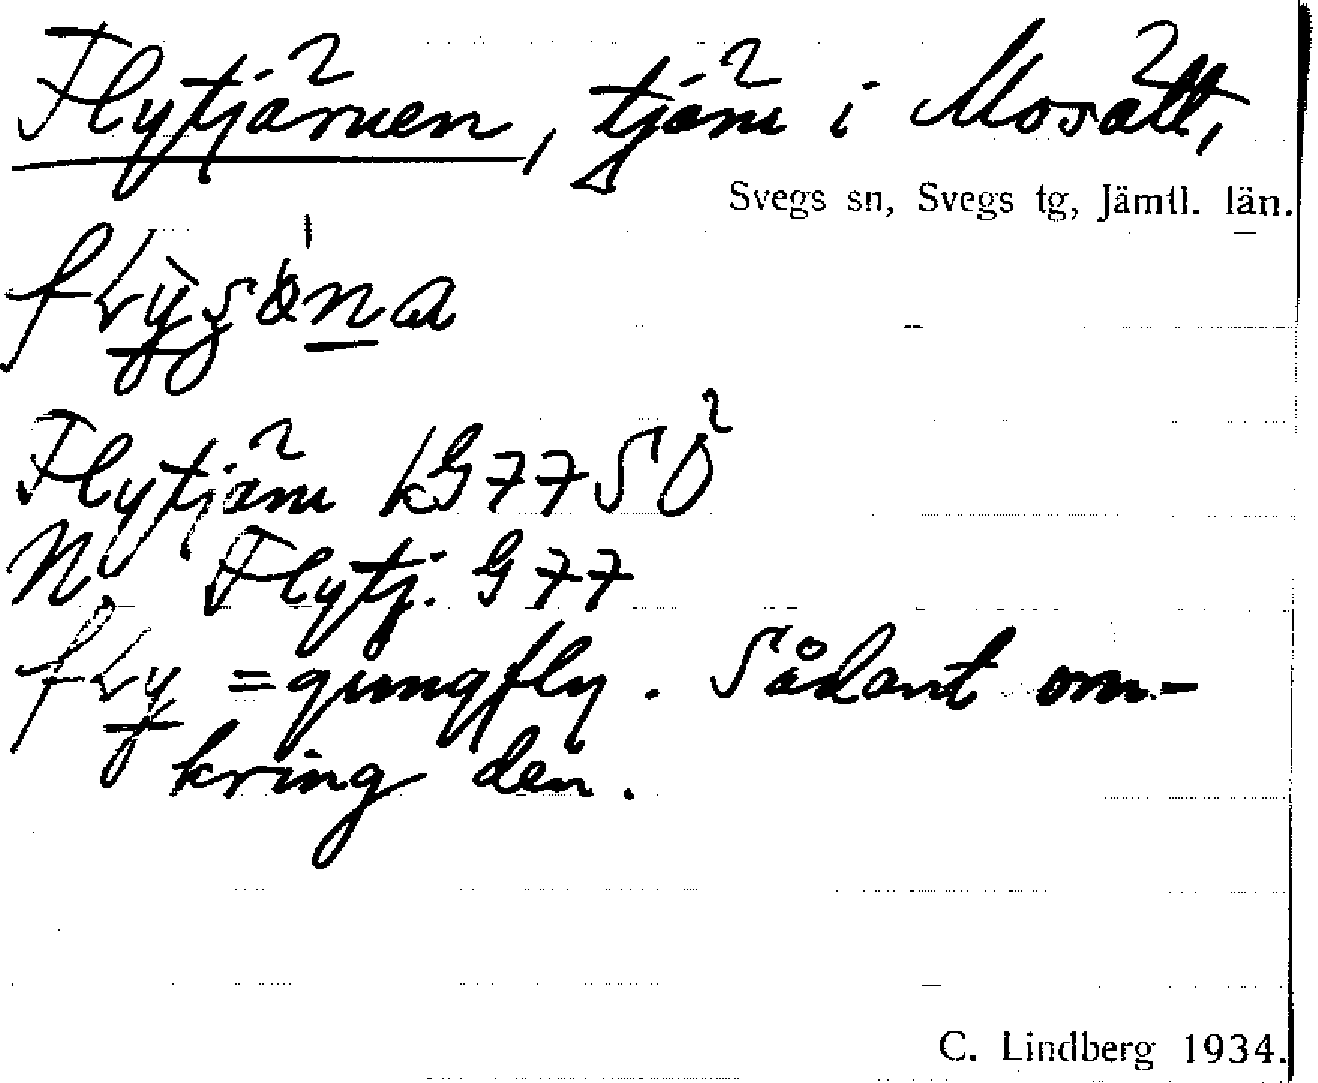 Flytjärnen, tjärn i Mosätt,
Svegs sn, Svegs tg, Jämtl. län.
Flytjärn kG77SÖ
N. Flytj. G77
fly = gungfly. Sådant om-
kring den.
C. Lindberg 1934.